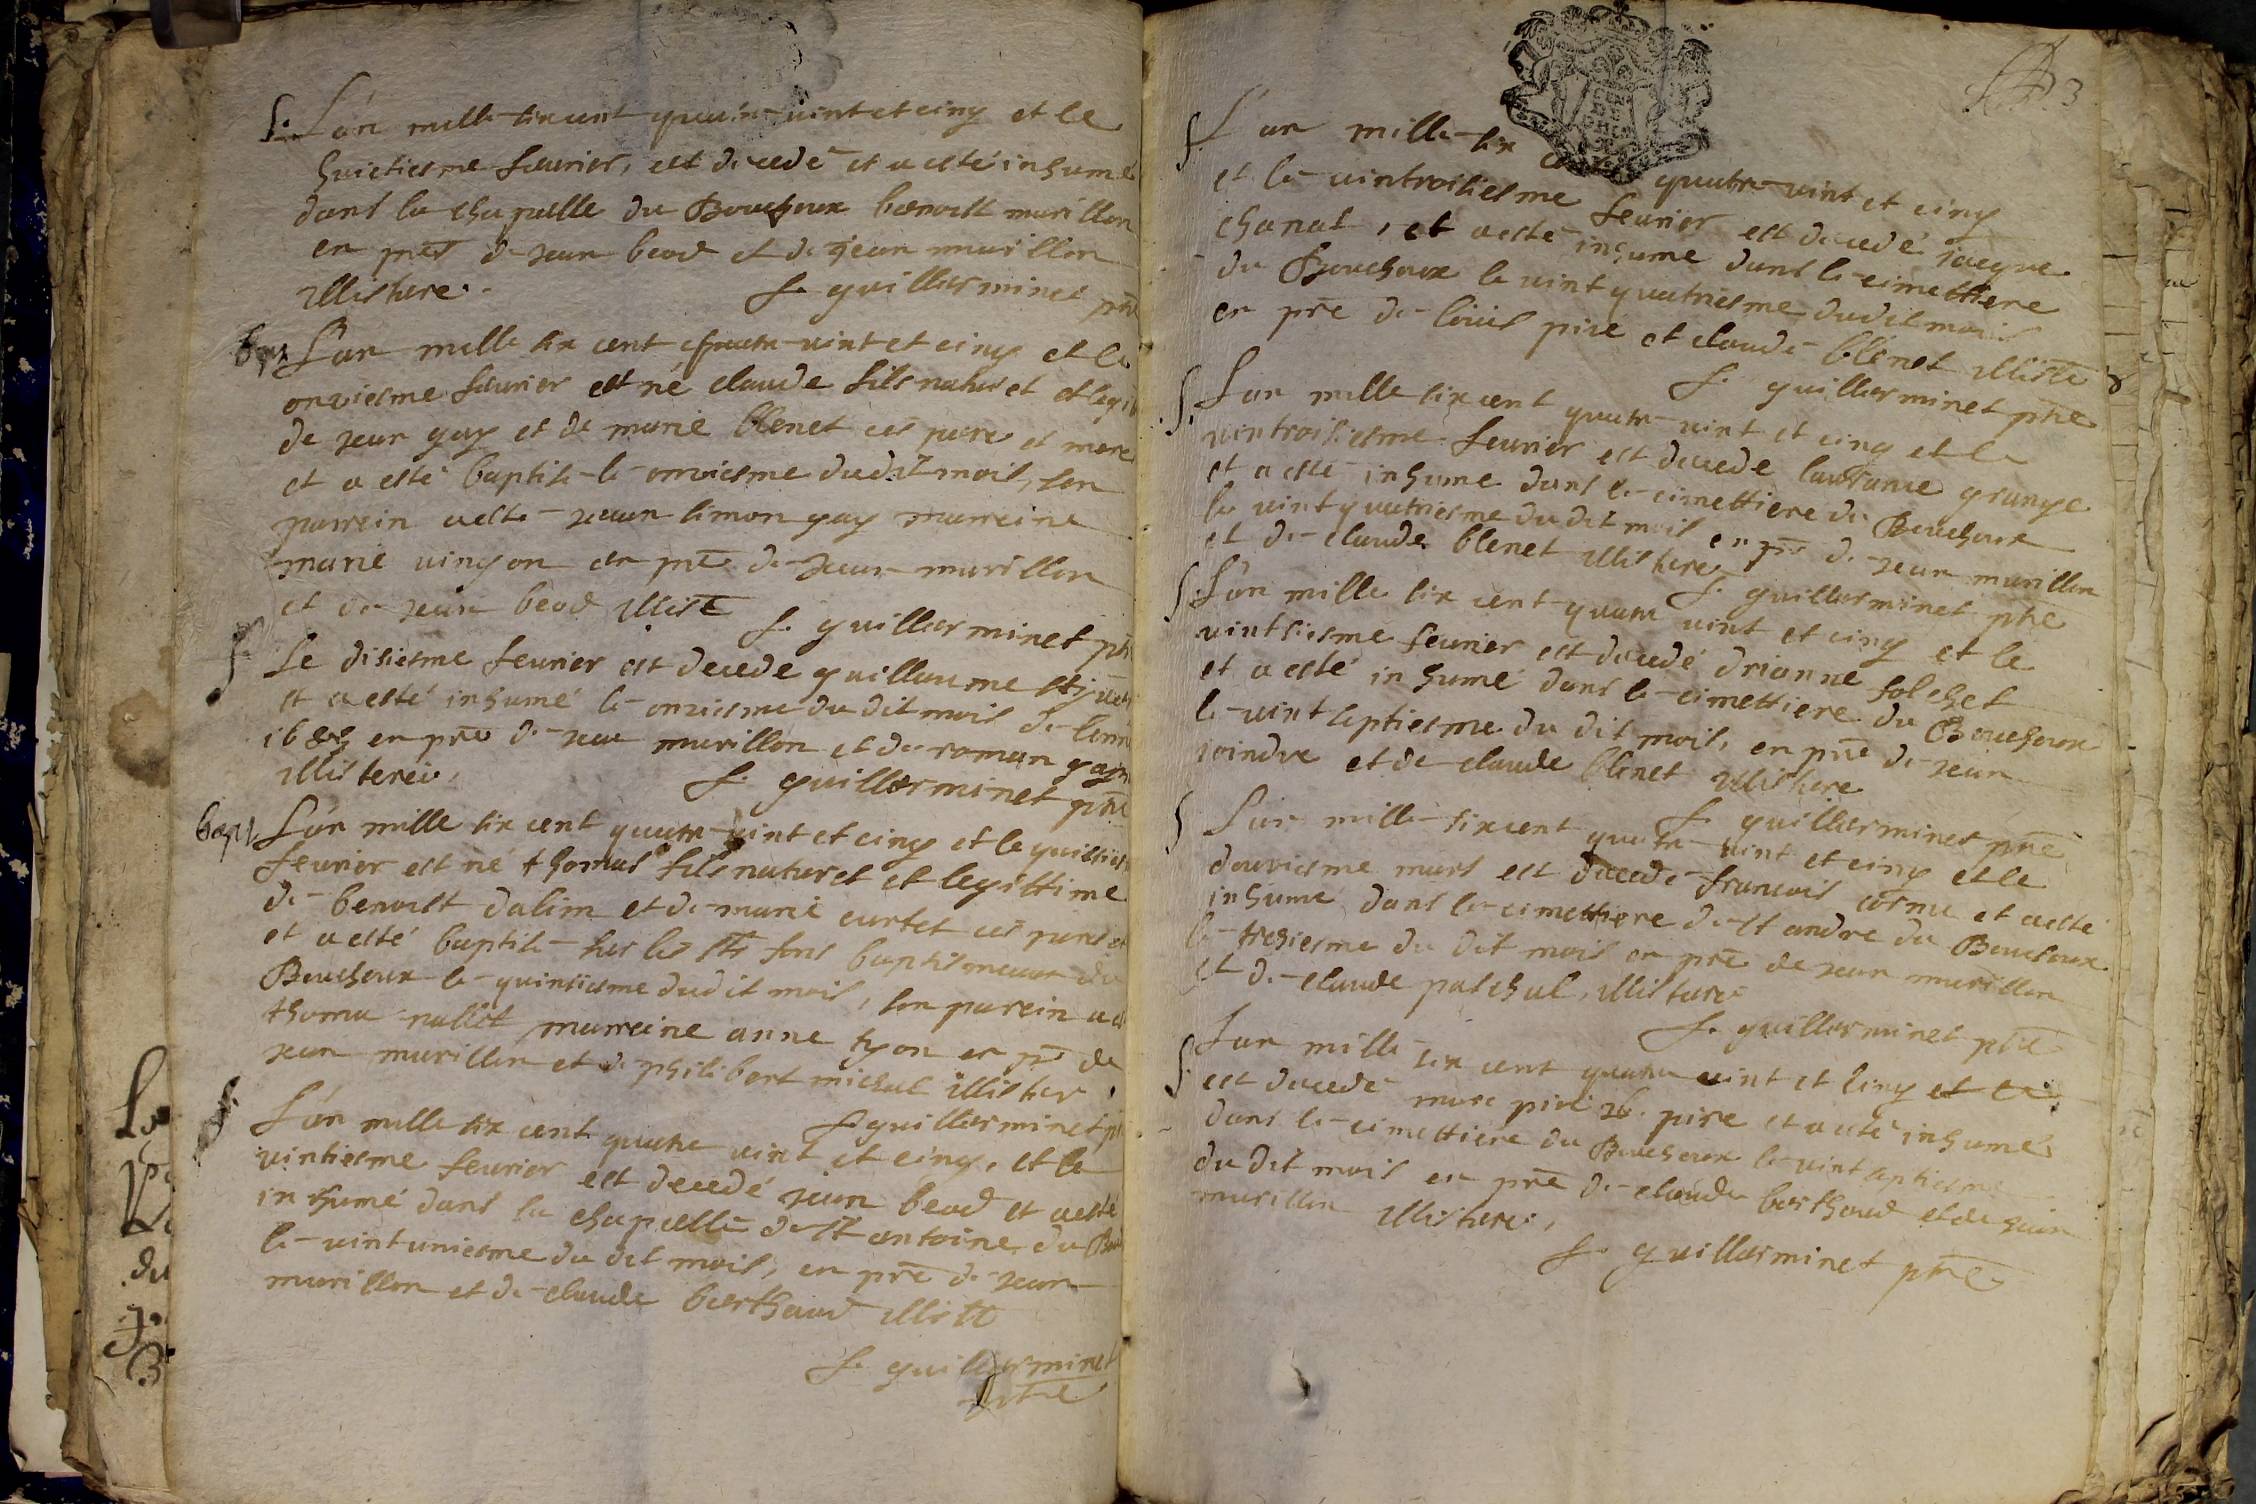 S. L'an mille six cent quatre-vint et cinq et le
huictiesme feurier, est decedé et a esté inhumé
dans la chapelle du Bouchoux benoist murillon
en pnce de Jean beod et de Jean murillon
illisteré. f. guillerminet ptre
bap. L'an mille six cent quatre-vint et cinq et le
onziesme feurier est né claude fils naturel et legi
de Jean gay et de marie blenet ces pere et mere
et a esté baptise le onziesme dudit mois, son
parrein a esté Jean simon gay marreine
marie uingon en pre de Jean murillon
et de Jean beod illist f. guillerminet ptre
Le disiesme feurier est decede guillaume
et a esté inhumé le onziesme du dit mois de lann
1685 en pre de Jean murillon et de roman gay
illisterei. f. guillerminet ptre
bapt. L'an mille six cent quatre-vint et cinq et le
feurier est né thomas fils naturel et legittime
de benoist dalim et de marie curtet ces peres et
et a esté baptise sus les sts fons baptismeaux du
Bouchoux le quinsiesme dudit mois, son parein a
thoma nallet marreine anne tyon en pr de
Jean murillon et de philibert michal illister.
f guillerminet p
L'an mille six cent quatre vint et cinq, et le
vintiesme feurier est decedé Jean beod et a esté
inhumé dans la chapelle de st antoine du Bou
le vintuniesme du dit mois, en pre de Jean
murillon et de claude berthaud illistt
f. guillerminet
ptre
3
S L'an mille six cent quatre-vint et cinq
et le vintroisiesme feurier est decedé Jacque
chanat, et a esté inhume dans le cimettiere
du Bouchoux le vint quatriesme dudit mois
en pre de louis piré et claude blenet illiste
f. guillerminet ptre
S. L'an mille six cent quatre-vint et cinq et le
vintroisiesme feurier est decede grange
et a esté inhume dans le cimettiere du Bouchoux
le vint quatriesme du dit mois en pre de Jean murillon
et de claude blenet illistere f. guillerminet ptre
S L'an mille six cent quatre vint et cinq et le
feurier est decedé drianne folchet
et a esté inhumé dans le cimettiere du Bouchoux
le vint septiesme du dit mois, en pre de Jean
joindre et de claude blenet illistere
f. guillerminet ptre
S L'an mille six cent quatre-vint et cinq et le
douziesme mars est decede francois cornu et a esté
inhumé dans le cimettiere de st andre du Bouchoux
le tresiesme du dit mois en pre de Jean murillon
et de claude paschal, illisteré
f. guillerminet ptre
S. L'an mille six cent quatre vint et cinq et le
est decede marc piré 26. pire et a esté inhumé
dans le cimettiere du Bouchoux le vint septiesme
du dit mois en pre de claude berthaud et de Jean
murillon illisteré,
f. guillerminet ptre